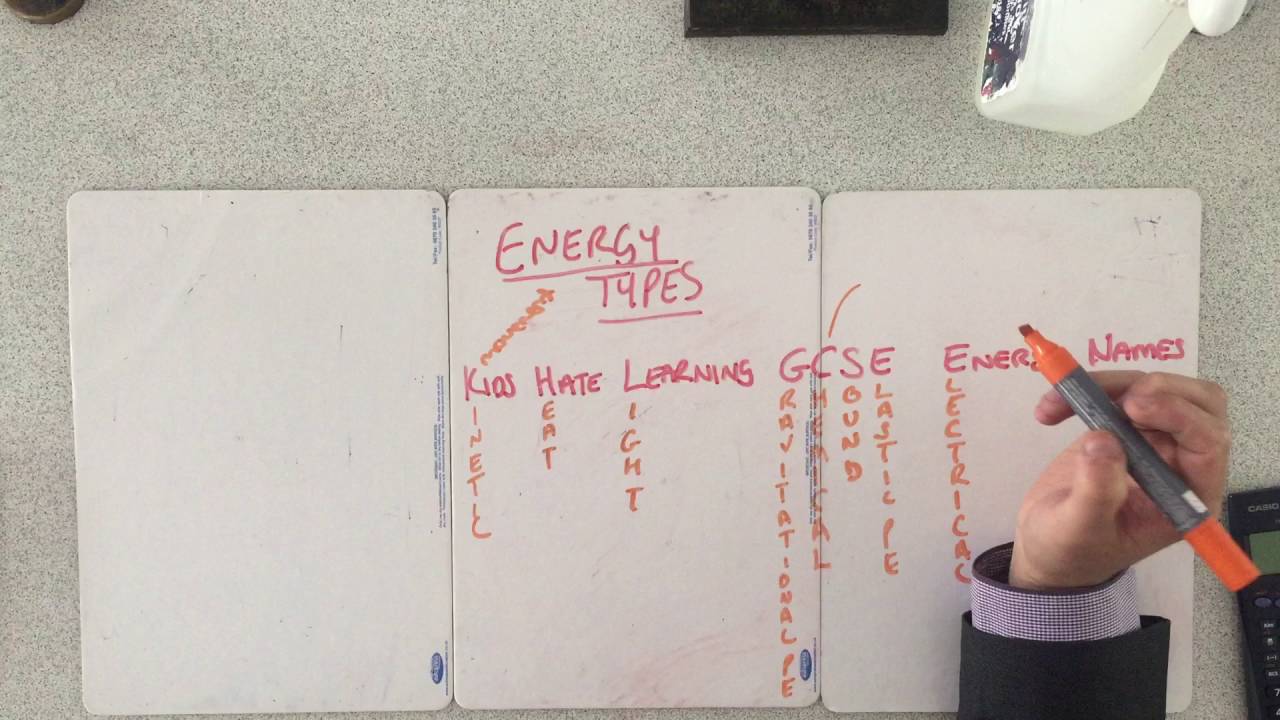 ENERGY
TYPES
KIDS HATE LEARNING GCSE ENER NAMES
INETIC
EAT
IGHT
RAVITATIONAL PE
HEMICAL
OUND
LASTIC PE
LECTRICAL
CASIO